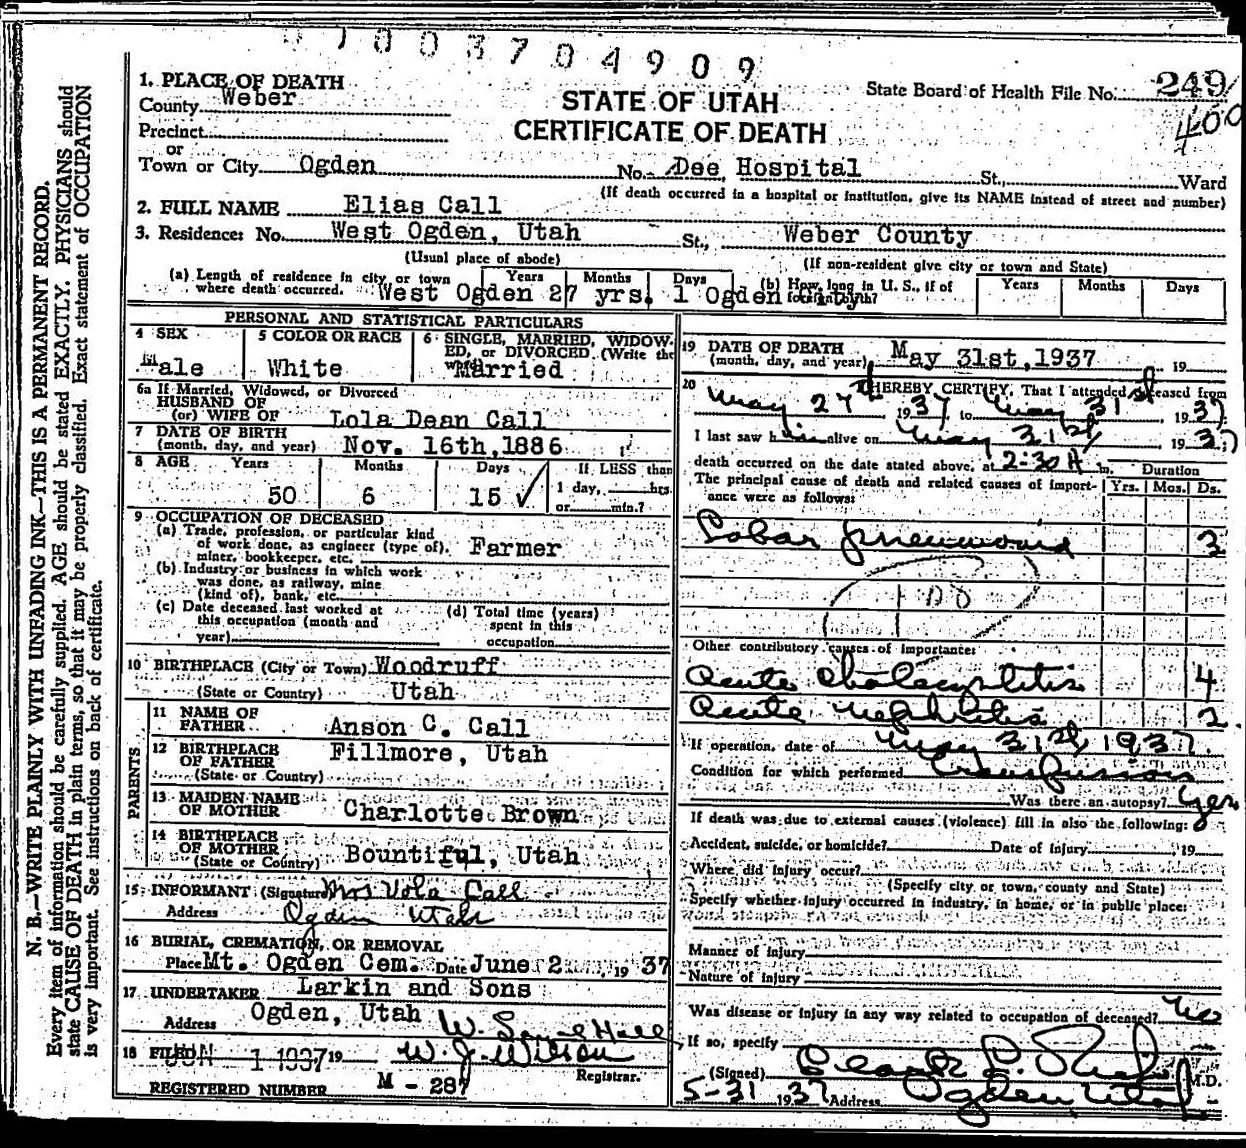 07003704909
1. PLACE OF DEATH
County Weber
Precinct
or
Town or City Ogden
STATE OF UTAH
CERTIFICATE OF DEATH
State Board of Health File No. 249
400
No. Dee Hospital St., Ward
(If death occurred in a hospital or institution, give its NAME instead of street and number)
2. FULL NAME Elias Call
3. Residence: No. West Ogden, Utah St., Weber County
(Usual place of abode) (If non-resident give city or town and State)
(a) Length of residence in city or town where death occurred. Years Months Days
West Ogden 27 yrs. 1 Ogden City
(b) How long in U. S., if of foreign birth? Years Months Days
PERSONAL AND STATISTICAL PARTICULARS
4 SEX Male
5 COLOR OR RACE White
6 SINGLE, MARRIED, WIDOWED, or DIVORCED (Write the word) Married
6a If Married, Widowed, or Divorced
HUSBAND OF
(or) WIFE OF Lola Dean Call
7 DATE OF BIRTH
(month, day, and year) Nov. 16th,1886
8 AGE Years Months Days If LESS than
50 6 15 ✓ 1 day, hrs.
or min.?
9 OCCUPATION OF DECEASED
(a) Trade, profession, or particular kind
of work done, as engineer (type of),
miner, bookkeeper, etc. Farmer
(b) Industry or business in which work
was done, as railway, mine
(kind of), bank, etc.
(c) Date deceased last worked at
this occupation (month and
year)
(d) Total time (years)
spent in this
occupation
10 BIRTHPLACE (City or Town) Woodruff
(State or Country) Utah
PARENTS
11 NAME OF
FATHER Anson C. Call
12 BIRTHPLACE
OF FATHER Fillmore, Utah
(State or Country)
13 MAIDEN NAME
OF MOTHER Charlotte Brown
14 BIRTHPLACE
OF MOTHER
(State or Country) Bountiful, Utah
15 INFORMANT (Signature) Mrs Vola Call
Address Ogden Utah
16 BURIAL, CREMATION, OR REMOVAL
Place Mt. Ogden Cem. Date June 2 19 37
17 UNDERTAKER Larkin and Sons
Address Ogden, Utah
18 FILED JUN 1 1937 19
W. J. Wilson
Registrar.
REGISTERED NUMBER M - 287
19 DATE OF DEATH
(month, day, and year) May 31st,1937 19
20 I HEREBY CERTIFY, That I attended deceased from
May 27th, 1937 to May 31st, 1937
I last saw him alive on May 31st, 1937
death occurred on the date stated above, at 2:30 A m. Duration
The principal cause of death and related causes of importance were as follows: Yrs. Mos. Ds.
Lobar pneumonia 3
108
Other contributory causes of importance:
Acute Cholecystitis 4
Acute nephritis 2.
If operation, date of May 31st, 1937.
Condition for which performed Transfusion
Was there an autopsy? Yes
If death was due to external causes (violence) fill in also the following:
Accident, suicide, or homicide? Date of injury 19
Where did injury occur?
(Specify city or town, county and State)
Specify whether injury occurred in industry, in home, or in public place:
Manner of injury
Nature of injury
Was disease or injury in any way related to occupation of deceased? No
If so, specify
(Signed) M.D.
5-31 1937 Address Ogden, Utah.
N. B.—WRITE PLAINLY WITH UNFADING INK—THIS IS A PERMANENT RECORD.
Every item of information should be carefully supplied. AGE should be stated EXACTLY. PHYSICIANS should
state CAUSE OF DEATH in plain terms, so that it may be properly classified. Exact statement of OCCUPATION
is very important. See instructions on back of certificate.